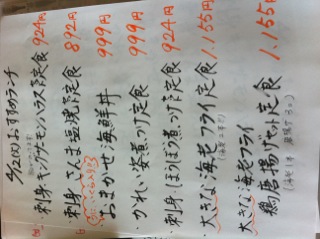 4/2(水)おすすめランチ
刺身・キングサーモンハラス焼定食 924円
刺身・さんま塩焼定食 892円
おまかせ海鮮丼 999円
かれい姿煮つけ定食 999円
刺身・ほうぼう煮つけ定食 924円
大きな海老フライ定食 1,155円
大きな海老フライ
鶏唐揚げセット定食 1,155円